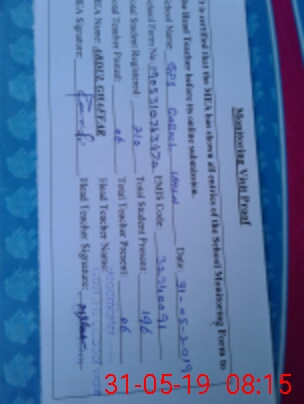 Monitoring Visit Proof
It is certified that the MEA has shown all entries of the School Monitoring Form to
the Head Teacher before its online submission.
School Name: GPS Date: 31-05-2019
School Form No. EMIS Code:
Total Student Registered: 210 Total Student Present: 196
Total Teacher Posted: 06 Total Teacher Present: 06
MEA Name: ABDUL GHAFFAR Head Teacher Name:
MEA Signature: Head Teacher Signature:
31-05-19 08:15